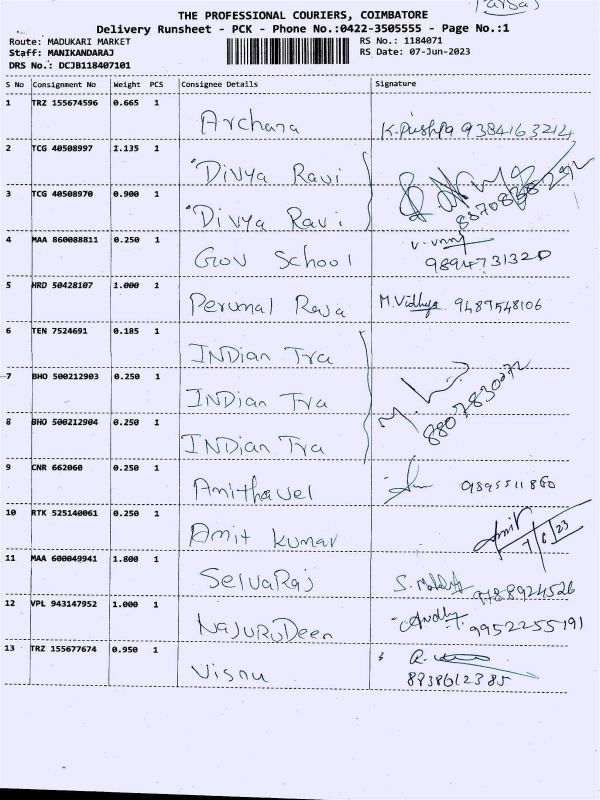 Parsal
THE PROFESSIONAL COURIERS, COIMBATORE
Delivery Runsheet - PCK - Phone No.:0422-3505555 - Page No.:1
Route: MADUKARI MARKET RS No.: 1184071
Staff: MANIKANDARAJ RS Date: 07-Jun-2023
DRS No.: DCJB118407101
S No Consignment No Weight PCS Consignee Details Signature
1 TRZ 155674596 0.665 1
Archana K.Pushpa 9384163214
2 TCG 40508997 1.135 1
Divya Ravi
3 TCG 40508970 0.900 1
Divya Ravi
4 MAA 860088811 0.250 1
Gov School 9894731320
5 HRD 50428107 1.000 1
Perumal Raja M.Vidhya 9487548106
6 TEN 7524691 0.185 1
INDian Tra
7 BHO 500212903 0.250 1
INDian Tra
8807830072
8 BHO 500212904 0.250 1
INDian Tra
9 CNR 662060 0.250 1
Amithavel 9895511860
10 RTK 525140061 0.250 1
Amit Kumar Amit 7/6/23
11 MAA 600049941 1.800 1
SelvaRaj S. 9788924526
12 VPL 943147952 1.000 1
NajuruDeen 9952255191
13 TRZ 155677674 0.950 1
Visnu R.
8938612385